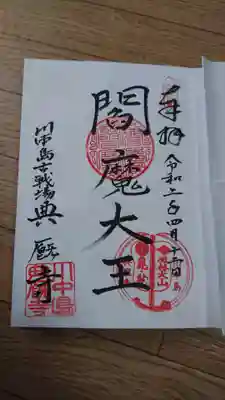 奉拝
令和二年四月十二日
閻魔大王
川中島古戦場
典厩寺
川中島
典厩寺